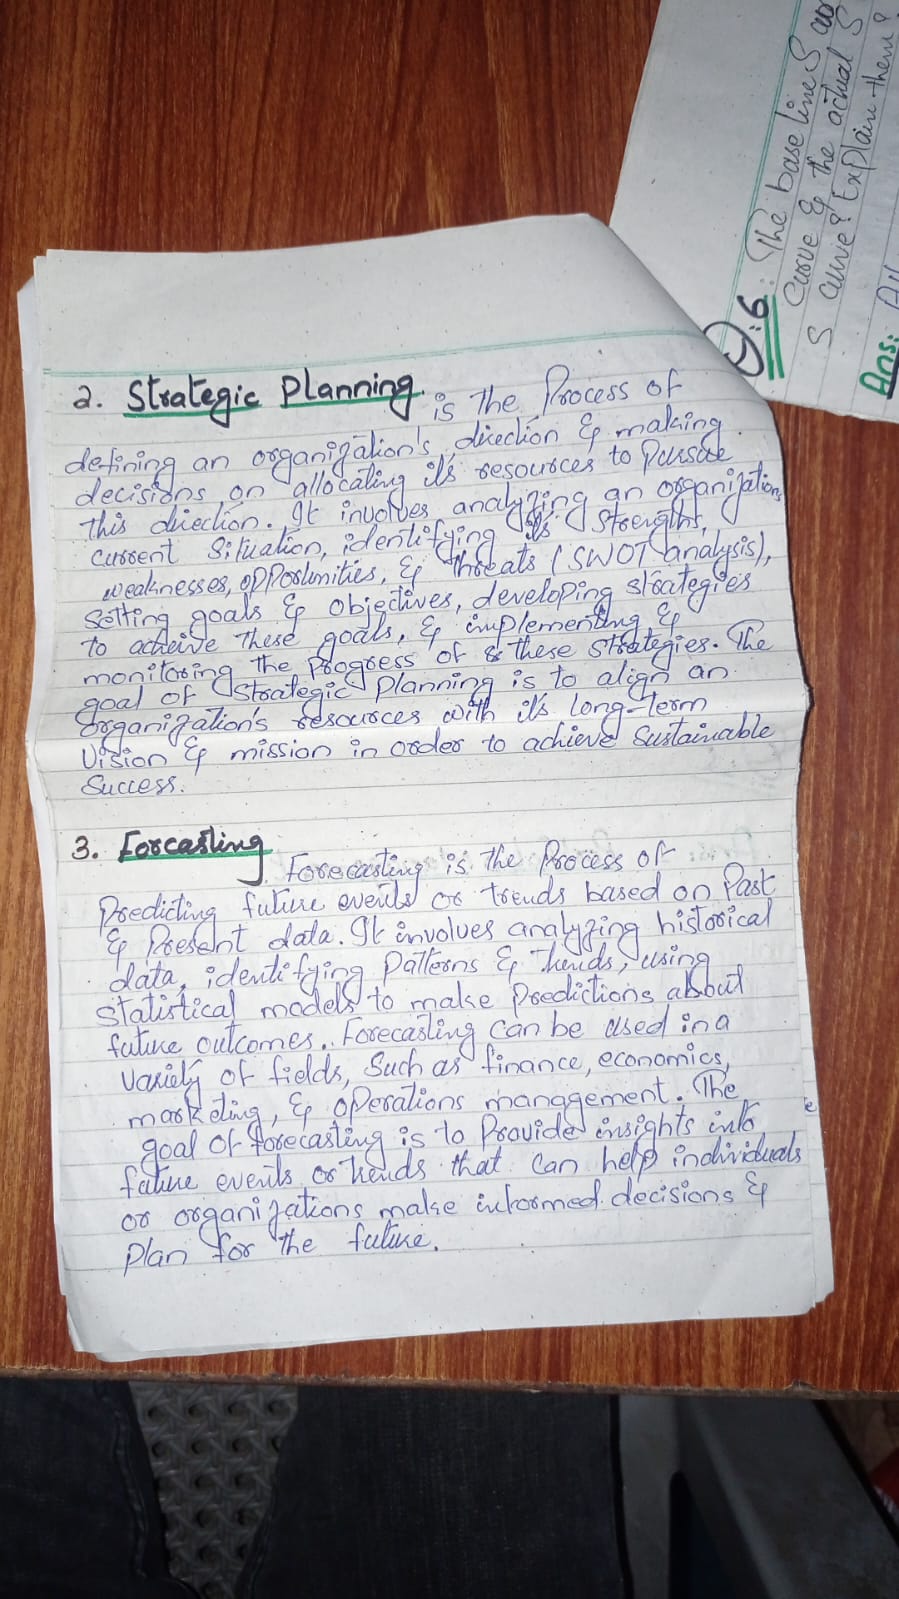 2. Strategic Planning is the Process of
defining an organization's direction & making
decisions on allocating its resources to Pursue
this direction. It involves analyzing an organization
current Situation, identifying its Strengths,
weaknesses, opportunities, & threats (SWOT analysis),
Setting goals & objectives, developing strategies
to acheive these goals, & implementing &
monitoring the Progress of these strategies. The
goal of Strategic Planning is to align an
organization's resources with it's long-term
Vision & mission in order to achieve Sustainable
Success.
3. Forcasting Forecasting is the Process of
Predicting future events or trends based on Past
& Present data. It involves analyzing historical
data, identifying Patterns & Trends, using
statistical models to make Predictions about
future outcomes. Forecasting can be used in a
Variety of fields, Such as finance, economics,
marketing, & operations management. The
goal of forecasting is to Provide insights into
future events or trends that can help individuals
or organizations make informed decisions &
Plan for the future.
Q:6: The base line S
Curve & the actual S
S curve? Explain them?
Ans: